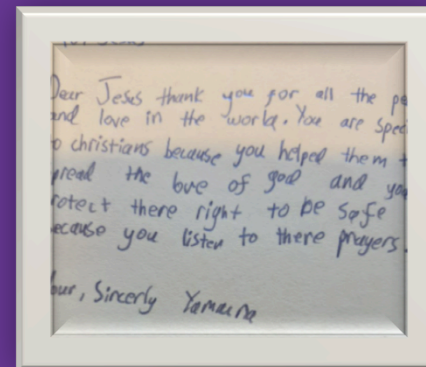 Dear Jesus thank you for all the pe
and love in the world. You are spec
o christians because you helped them t
pread the love of god and you
rotect there right to be safe
ecause you listen to there prayers.
our, Sincerly Yamaura